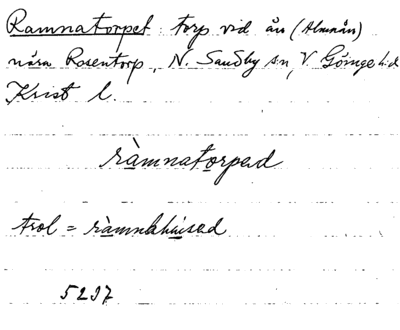 Ramnatorpet : torp vid ån (Almaån)
nära Rosentorp, N. Sandby sn, V. Göinge h:d
Krist l.
ràmnatorpəd
trol = ràmnahúsəd
5297